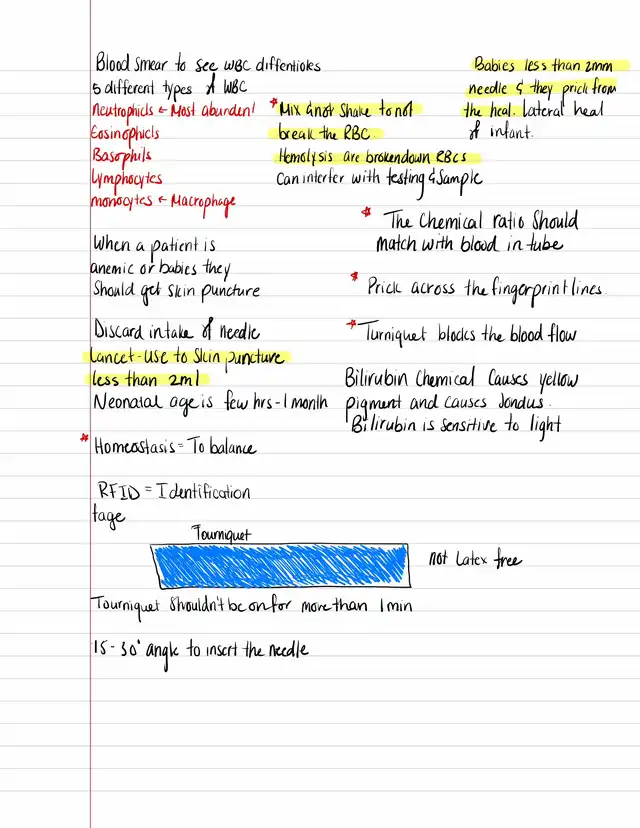 Blood smear to see WBC diffentioles
5 different types of WBC
Neutrophicls ← Most abundent
Eosinophicls
Basophils
Lymphocytes
monocytes ← Macrophage
* Mix & not shake to not
break the RBC.
Hemolysis are brokendown RBCs
Can interfer with testing & sample
Babies less than 2mm
needle & they prick from
the heal. Lateral heal
of infant.
* The Chemical ratio Should
match with blood in tube
When a patient is
anemic or babies they
Should get skin puncture
* Prick across the fingerprint lines.
Discard intake of needle
Lancet-Use to Skin puncture
less than 2ml
Neonatal age is few hrs - 1 month
* Turniquet blocks the blood flow
Bilirubin Chemical Causes yellow
pigment and causes Jondus.
Bilirubin is sensitive to light
* Homeostasis = To balance
RFID = Identification
tage
Tourniquet
not Latex free
Tourniquet Shouldn't be on for more than 1 min
15 - 30° angle to insert the needle